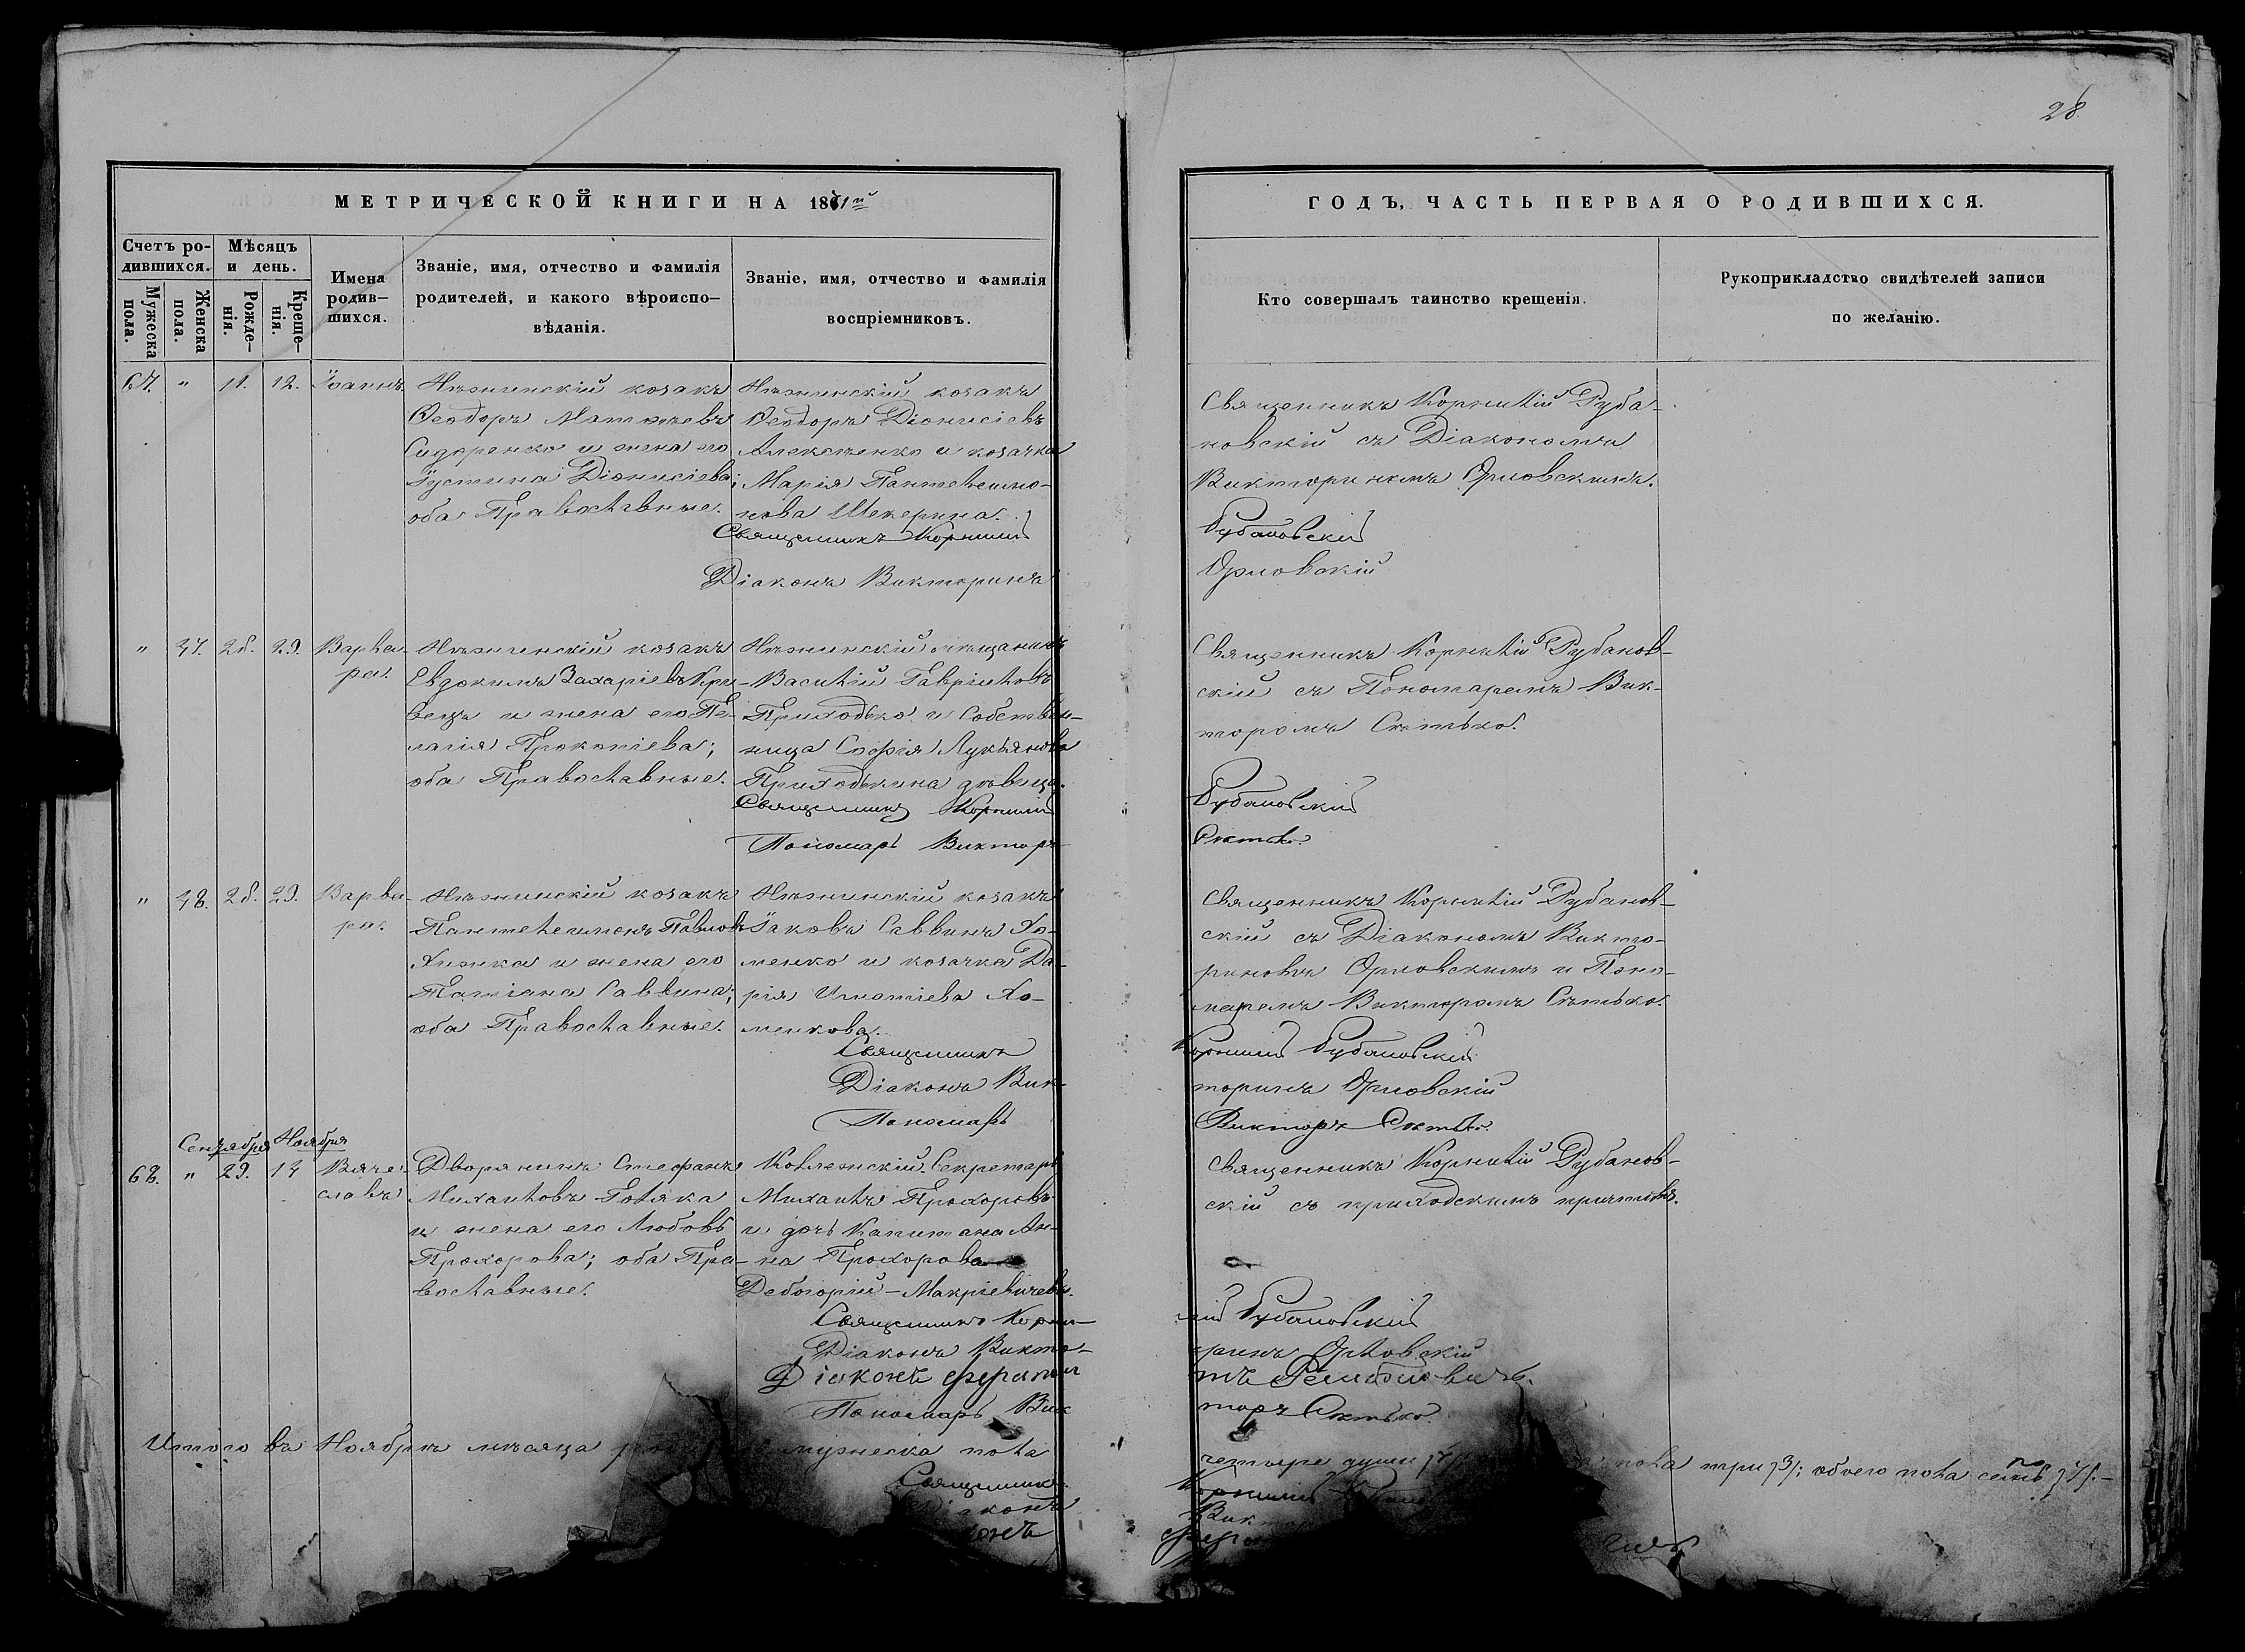 28.
МЕТРИЧЕСКОЙ КНИГИ НА 1861й
ГОДЪ, ЧАСТЬ ПЕРВАЯ О РОДИВШИХСЯ.
Счетъ родившихся.
Мужеска пола.
Женска пола.
Мѣсяцъ и день.
Рожде-нія.
Креще-нія.
Имена родив-шихся.
Званіе, имя, отчество и фамилія
родителей, и какого вѣроиспо-
вѣданія.
Званіе, имя, отчество и фамилія
воспріемниковъ.
Кто совершалъ таинство крещенія.
Рукоприкладство свидѣтелей записи
по желанію.
67. " 11. 12. Іоаннъ.
Нѣжинскій козакъ
Ѳеодоръ Матѳѣевъ
Сидоренко и жена его
Іустина Діонисіева;
оба Православные.
Нѣжинскій козакъ
Ѳеодоръ Діонисіевъ
Алексѣенко и козачка
Марія Пантелеимо-
нова Шекерина.
Священникъ Корнилій
Діаконъ Викторинъ
Священникъ Корнилій Руба-
новскій съ Діакономъ
Викториномъ Орловскимъ.
Рубановскій
Орловскій
" 47. 28. 29. Варва-
ра.
Нѣжинскій козакъ
Евдокимъ Захаріевъ Кри-
вецъ и жена его Пе-
лагія Прокопіева;
оба Православные.
Нѣжинскій мѣщанинъ
Василій Гавріиловъ
Приходько и Собствен-
ница Софія Лукьянова
Приходькина дѣвица.
Священникъ Корнилій
Пономарь Викторъ
Священникъ Корнилій Рубанов-
скій съ Пономаремъ Вик-
торомъ Сѣтько.
Рубановскій
Сѣтько.
" 48. 28. 29. Варва-
ра.
Нѣжинскій козакъ
Пантелеимонъ Павловъ
Хижка и жена его
Татіана Саввина;
оба Православные.
Нѣжинскій козакъ
Іаковъ Саввинъ Хо-
менко и козачка Да-
рія Игнатіева Хо-
менкова.
Священникъ
Діаконъ Вик-
Пономарь
Священникъ Корнилій Рубанов-
скій съ Діакономъ Викто-
риномъ Орловскимъ и Поно-
маремъ Викторомъ Сѣтько.
Корнилій Рубановскій
торинъ Орловскій
Викторъ Сѣтько.
Сентября Ноября
68. " 29. 14 Вяче-
славъ
Дворянинъ Стефанъ
Михаиловъ Голяка
и жена его Любовь
Прохорова; оба Пра-
вославные.
Коллежскій Секретарь
Михаилъ Прохоровъ
и дочь Капитана Ан-
на Прохорова
Дебогорій-Макріевичевы.
Священникъ Корни-
Діаконъ Викто-
Діаконъ Ферапон
Пономарь Вик
Священникъ Корнилій Рубанов-
скій съ приходскимъ причтомъ.
лій Рубановскій
ринъ Орловскій
тъ
торъ Сѣтько.
Итого въ Ноябрѣ мѣсяцѣ мужеска пола
четыре души пола три /3/; обоего пола семь /7/.-
Священникъ
Діаконъ
Корнилій